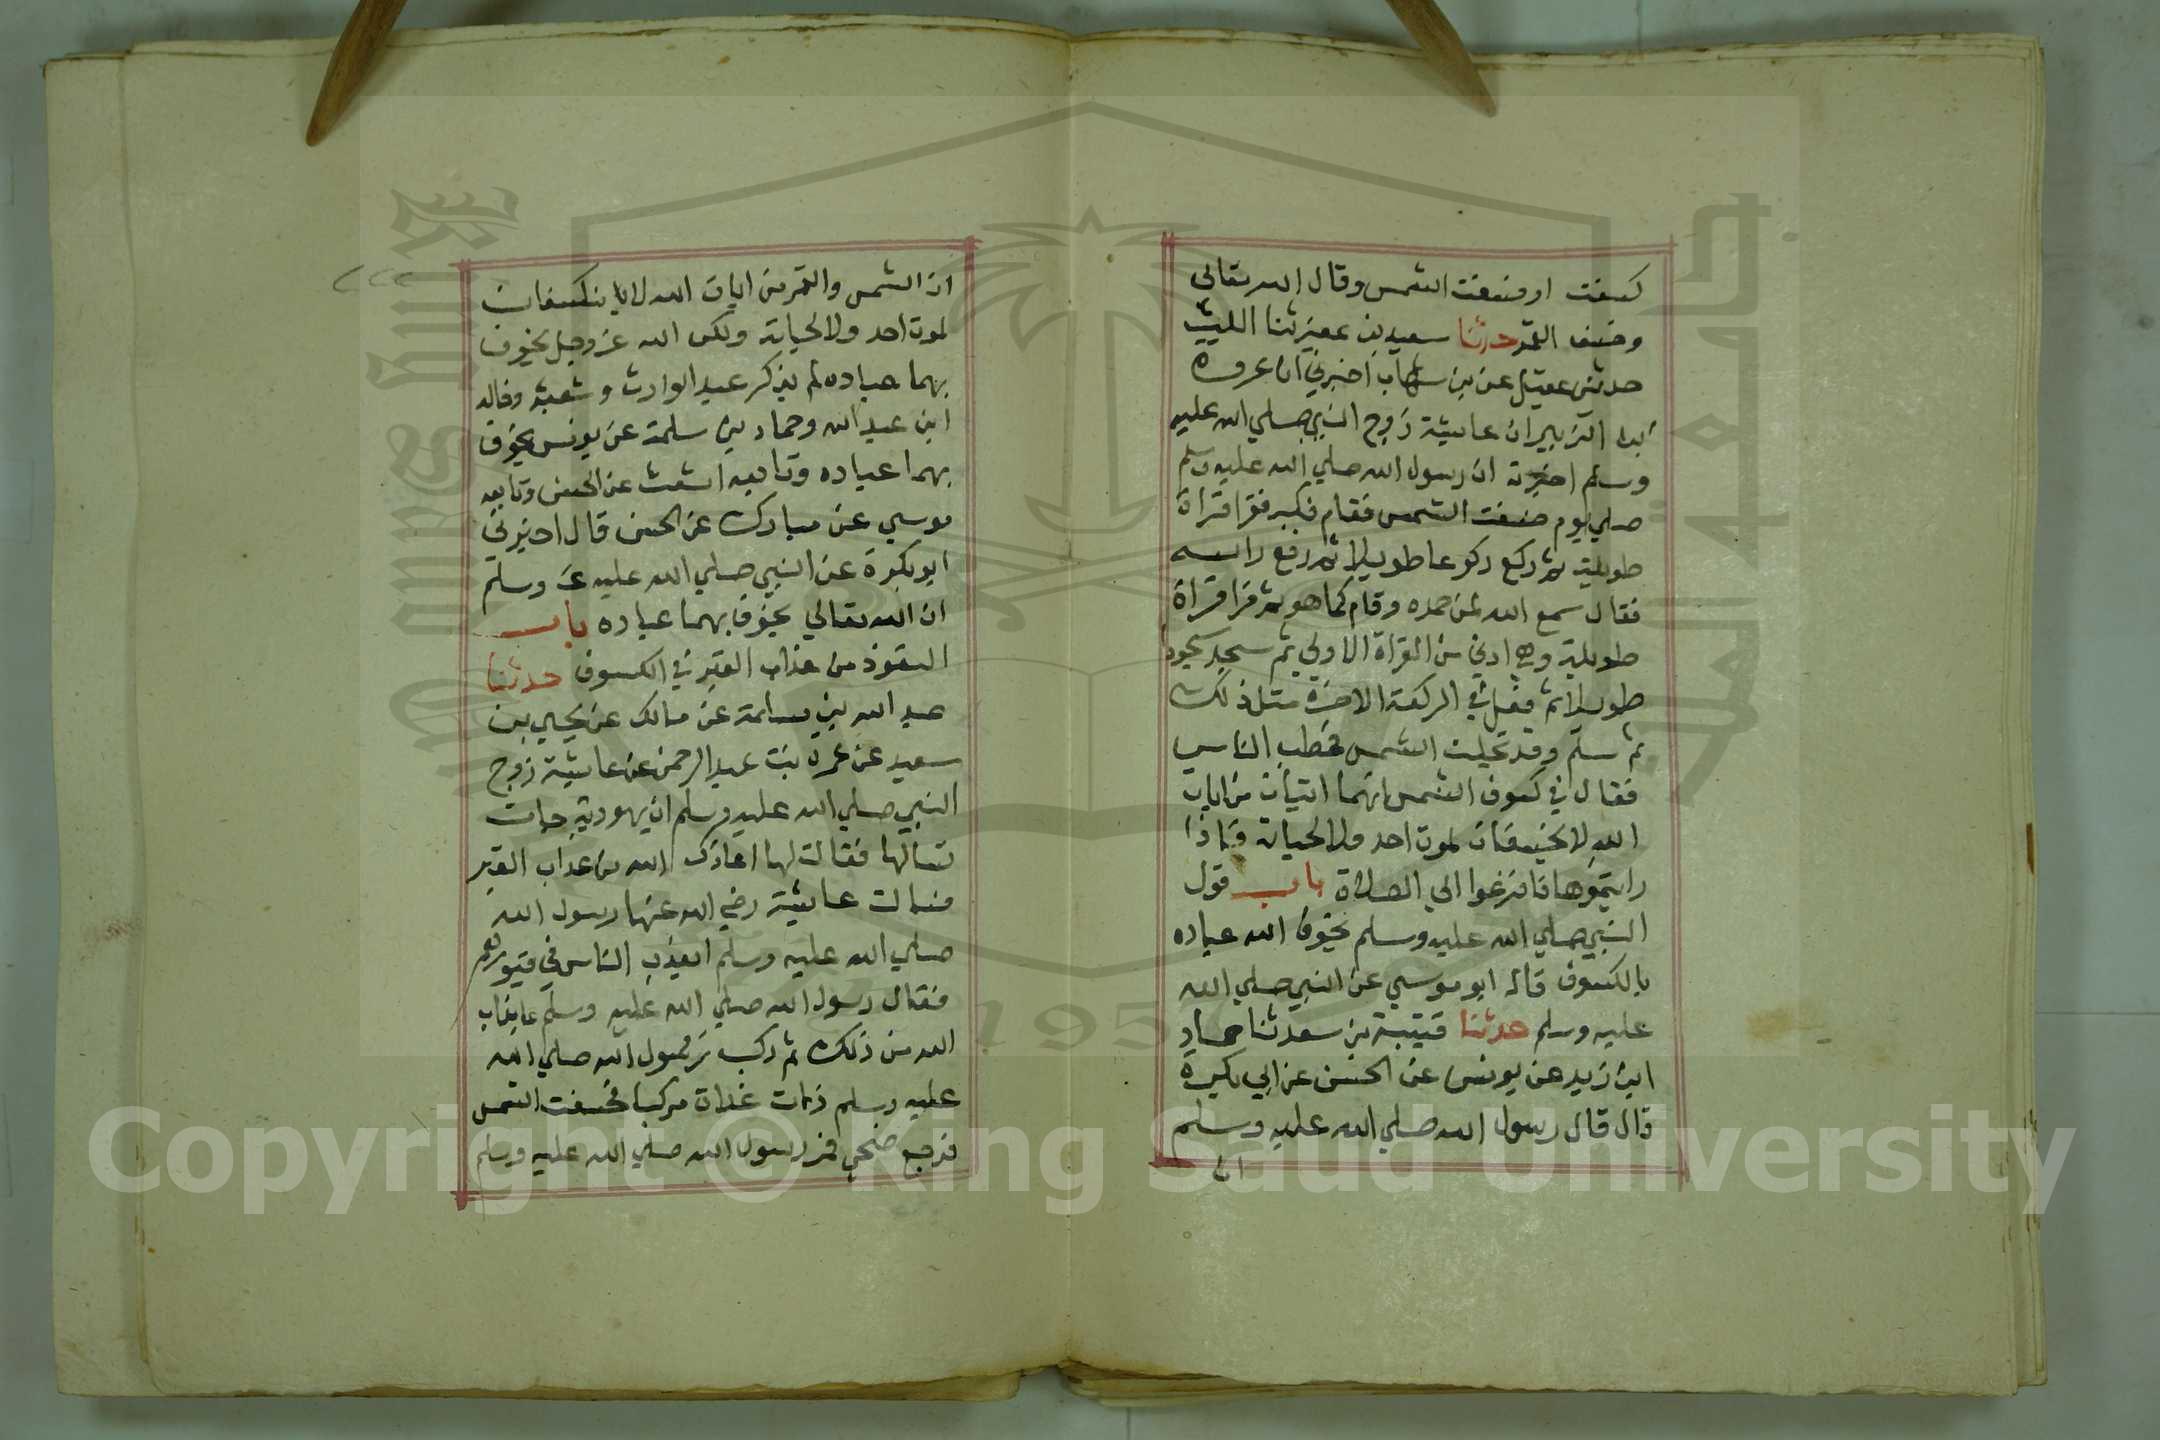 كسفت او خسفت الشمس وقال الله تعالى
وخسف القمر حدثنا سعيد بن عفير ثنا الليث
حدثني عقيل عن بن شهاب اخبرني ان عروة
ابن الزبير ان عايشة زوج النبي صلي الله عليه
وسلم اخبرته ان رسول الله صلي الله عليه وسلم
صلي يوم خسفت الشمس فقام فكبر فقرا قراة
طويلة ثم ركع ركوعا طويلا ثم رفع راسه
فقال سمع الله لمن حمده وقام كما هو ثم قرا قراة
طويلة وهي ادني من القراة الاولي ثم سجد سجودا
طويلا ثم فعل في الركعة الاخرة مثل ذلك
ثم سلم وقد تجلت الشمس فخطب الناس
فقال في كسوف الشمس انهما ايتان من ايات
الله لا يخسفان لموت احد ولا لحياته فاذا
رايتموها فافزعوا الي الصلاة باب قول
النبي صلي الله عليه وسلم يخوف الله عباده
بالكسوف قاله ابو موسي عن النبي صلي الله
عليه وسلم حدثنا قتيبة بن سعد ثنا حماد
ابن زيد عن يونس عن الحسن عن ابي بكرة
قال قال رسول الله صلي الله عليه وسلم
ان
ان الشمس والقمر من ايات الله لا ينكسفان
لموت احد ولا لحياته ولكن الله عز وجل يخوف
بهما عباده لم يذكر عبد الوارث وشعبة وخالد
ابن عبد الله وحماد بن سلمة عن يونس يخوف
بهما عباده وتابعه اشعث عن الحسن وتابعه
موسي عن مبارك عن الحسن قال اخبرني
ابو بكرة عن النبي صلي الله عليه وسلم
ان الله تعالي يخوف بهما عباده باب
التعوذ من عذاب القبر في الكسوف حدثنا
عبد الله بن مسلمة عن مالك عن يحيي بن
سعيد عن عمرة بنت عبد الرحمن عن عايشة زوج
النبي صلي الله عليه وسلم ان يهودية جات
تسالها فقالت لها اعاذك الله من عذاب القبر
فسالت عايشة رضي الله عنها رسول الله
صلي الله عليه وسلم ايعذب الناس في قبورهم
فقال رسول الله صلي الله عليه وسلم عايذا ب
الله من ذلك ثم ركب رسول الله صلي الله
عليه وسلم ذات غداة مركبا فخسفت الشمس
فرجع ضحي فمر رسول الله صلي الله عليه وسلم
Copyright © King Saud University
1957